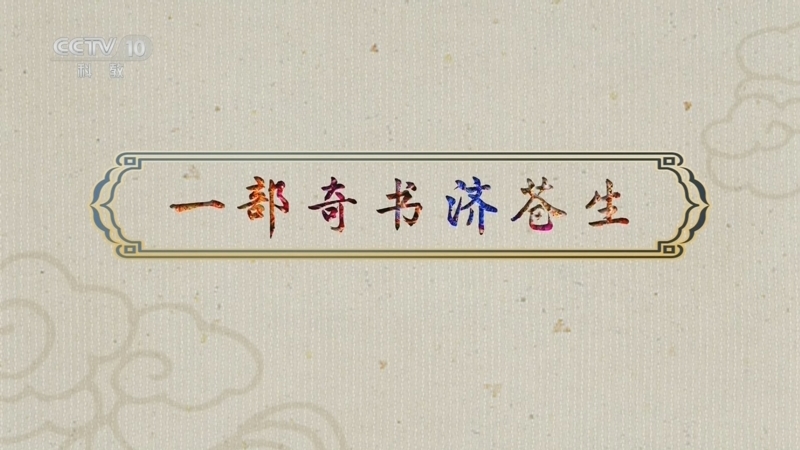 CCTV 10
科教
一部奇书济苍生